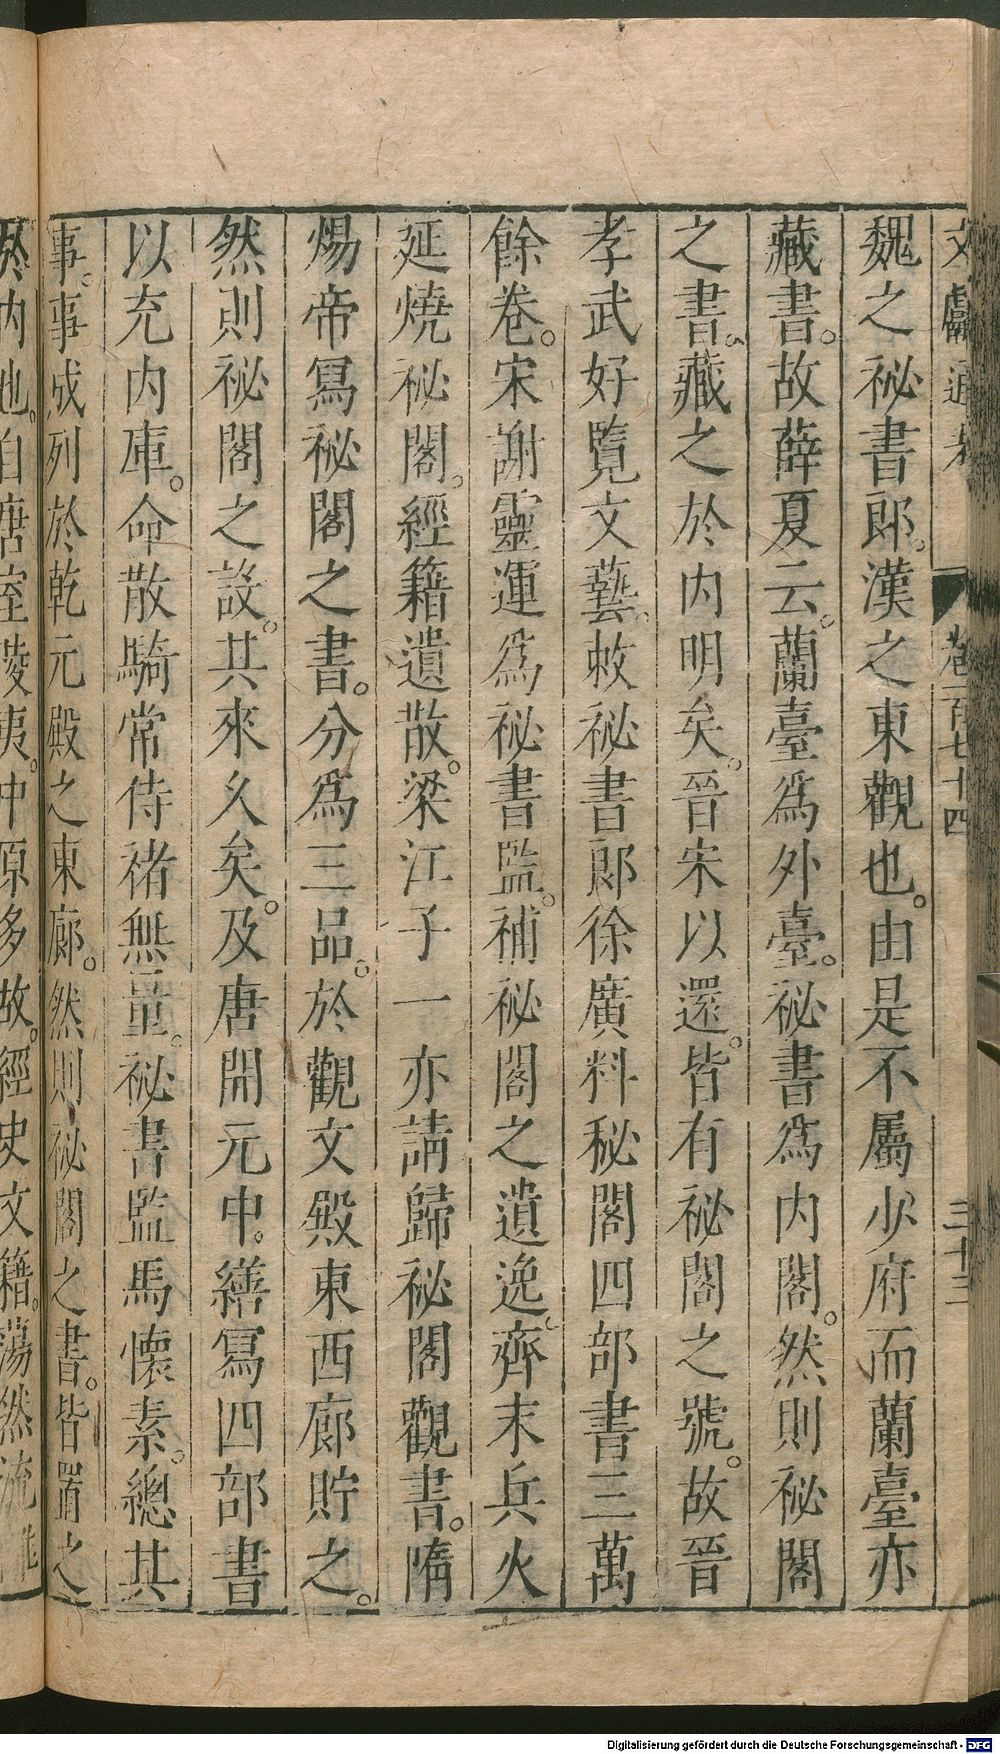 文獻通考 卷一百七十四 三十三
魏之祕書郎。漢之東觀也。由是不屬少府而蘭臺亦
藏書。故薛夏云。蘭臺爲外臺。祕書爲内閣。然則祕閣
之書。藏之於内明矣。晉宋以還。皆有祕閣之號。故晉
孝武好覽文藝。敕祕書郎徐廣料秘閣四部書三萬
餘卷。宋謝靈運爲祕書監。補祕閣之遺逸。齊末兵火
延燒祕閣。經籍遺散。梁江子一亦請歸祕閣觀書。隋
煬帝冩祕閣之書。分爲三品。於觀文殿東西廊貯之。
然則祕閣之設。其來久矣。及唐開元中。繕冩四部書
以充内庫。命散騎常侍禇無量。祕書監馬懷素。總其
事。事成列於乾元殿之東廊。然則祕閣之書。皆置之
於内也。自唐室陵夷。中原多故。經史文籍。蕩然流離
Digitalisierung gefördert durch die Deutsche Forschungsgemeinschaft - DFG